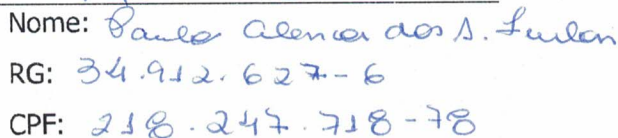 Nome: Paulo Alencar dos S.
RG: 34.912.627-6
CPF: 218.247.718-78